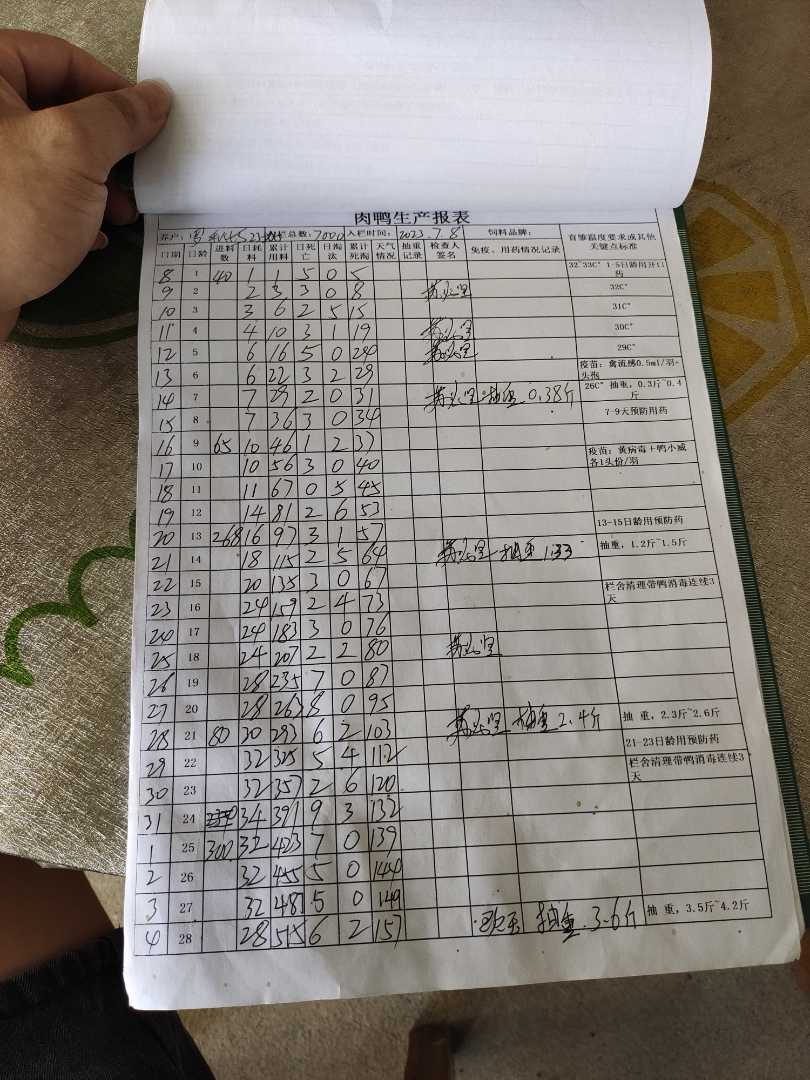 肉鸭生产报表
养户: 栏总数: 7000 入栏时间: 2023.7.8 饲料品牌:
日期 日龄 进料数 日耗料 累计用料 日死亡 日淘汰 累计死淘 天气情况 抽重记录 检查人签名 免疫、用药情况记录 首雏温度要求或其他关键点标准
8 1 40 1 1 5 0 5 32~33C° 1-5日龄用开口药
9 2 2 3 3 0 8 32C°
10 3 3 6 2 5 15 31C°
11 4 4 10 3 1 19 30C°
12 5 6 16 5 0 24 29C°
13 6 6 22 3 2 29 疫苗:禽流感0.5ml/羽-头孢
14 7 7 29 2 0 31 抽重 0.38斤 26C° 抽重,0.3斤~0.4斤
15 8 7 36 3 0 34 7-9天预防用药
16 9 65 10 46 1 2 37 疫苗:黄病毒+鸭小减各1头份/羽
17 10 10 56 3 0 40
18 11 11 67 0 5 45
19 12 14 81 2 6 53 13-15日龄用预防药
20 13 268 16 97 3 1 57 抽重,1.2斤~1.5斤
21 14 18 115 2 5 64 抽重 1.33
22 15 20 135 3 0 67 栏舍清理带鸭消毒连续3天
23 16 24 159 2 4 73
24 17 24 183 3 0 76
25 18 24 207 2 2 80
26 19 28 235 7 0 87
27 20 28 263 8 0 95
28 21 80 30 293 6 2 103 抽重 2.4斤 抽 重,2.3斤~2.6斤
29 22 32 325 5 4 112 21-23日龄用预防药
30 23 32 357 2 6 120 栏舍清理带鸭消毒连续3天
31 24 34 391 9 3 132
1 25 300 32 423 7 0 139
2 26 32 455 5 0 144
3 27 32 487 5 0 149
4 28 28 515 6 2 157 抽重 3.6斤 抽 重,3.5斤~4.2斤